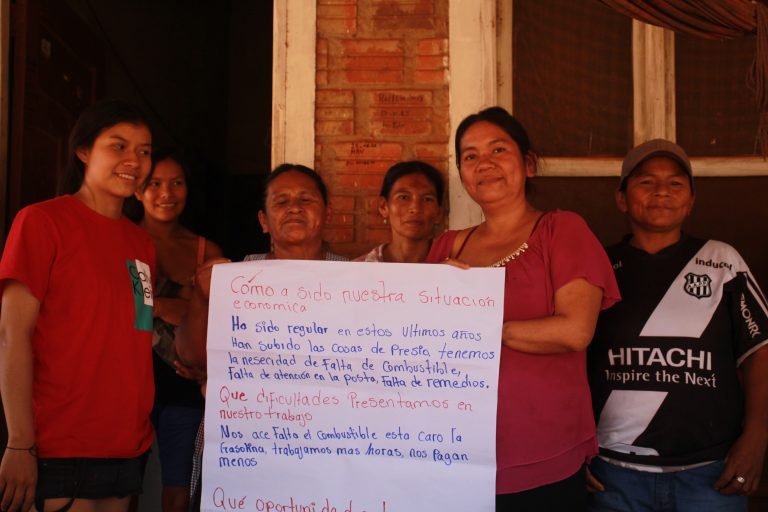 Cómo a sido nuestra situación
economica
Ha sido regular en estos ultimos años
Han subido las cosas de Presio, tenemos
la nesecidad de Falta de Combustible,
Falta de atención en la posta, Falta de remedios.
Que dificultades Presentamos en
nuestro trabajo
Nos ace Falta el combustible esta caro la
Gasolina, trabajamos mas horas, nos Pagan
menos
inducol
HITACHI
Inspire the Next